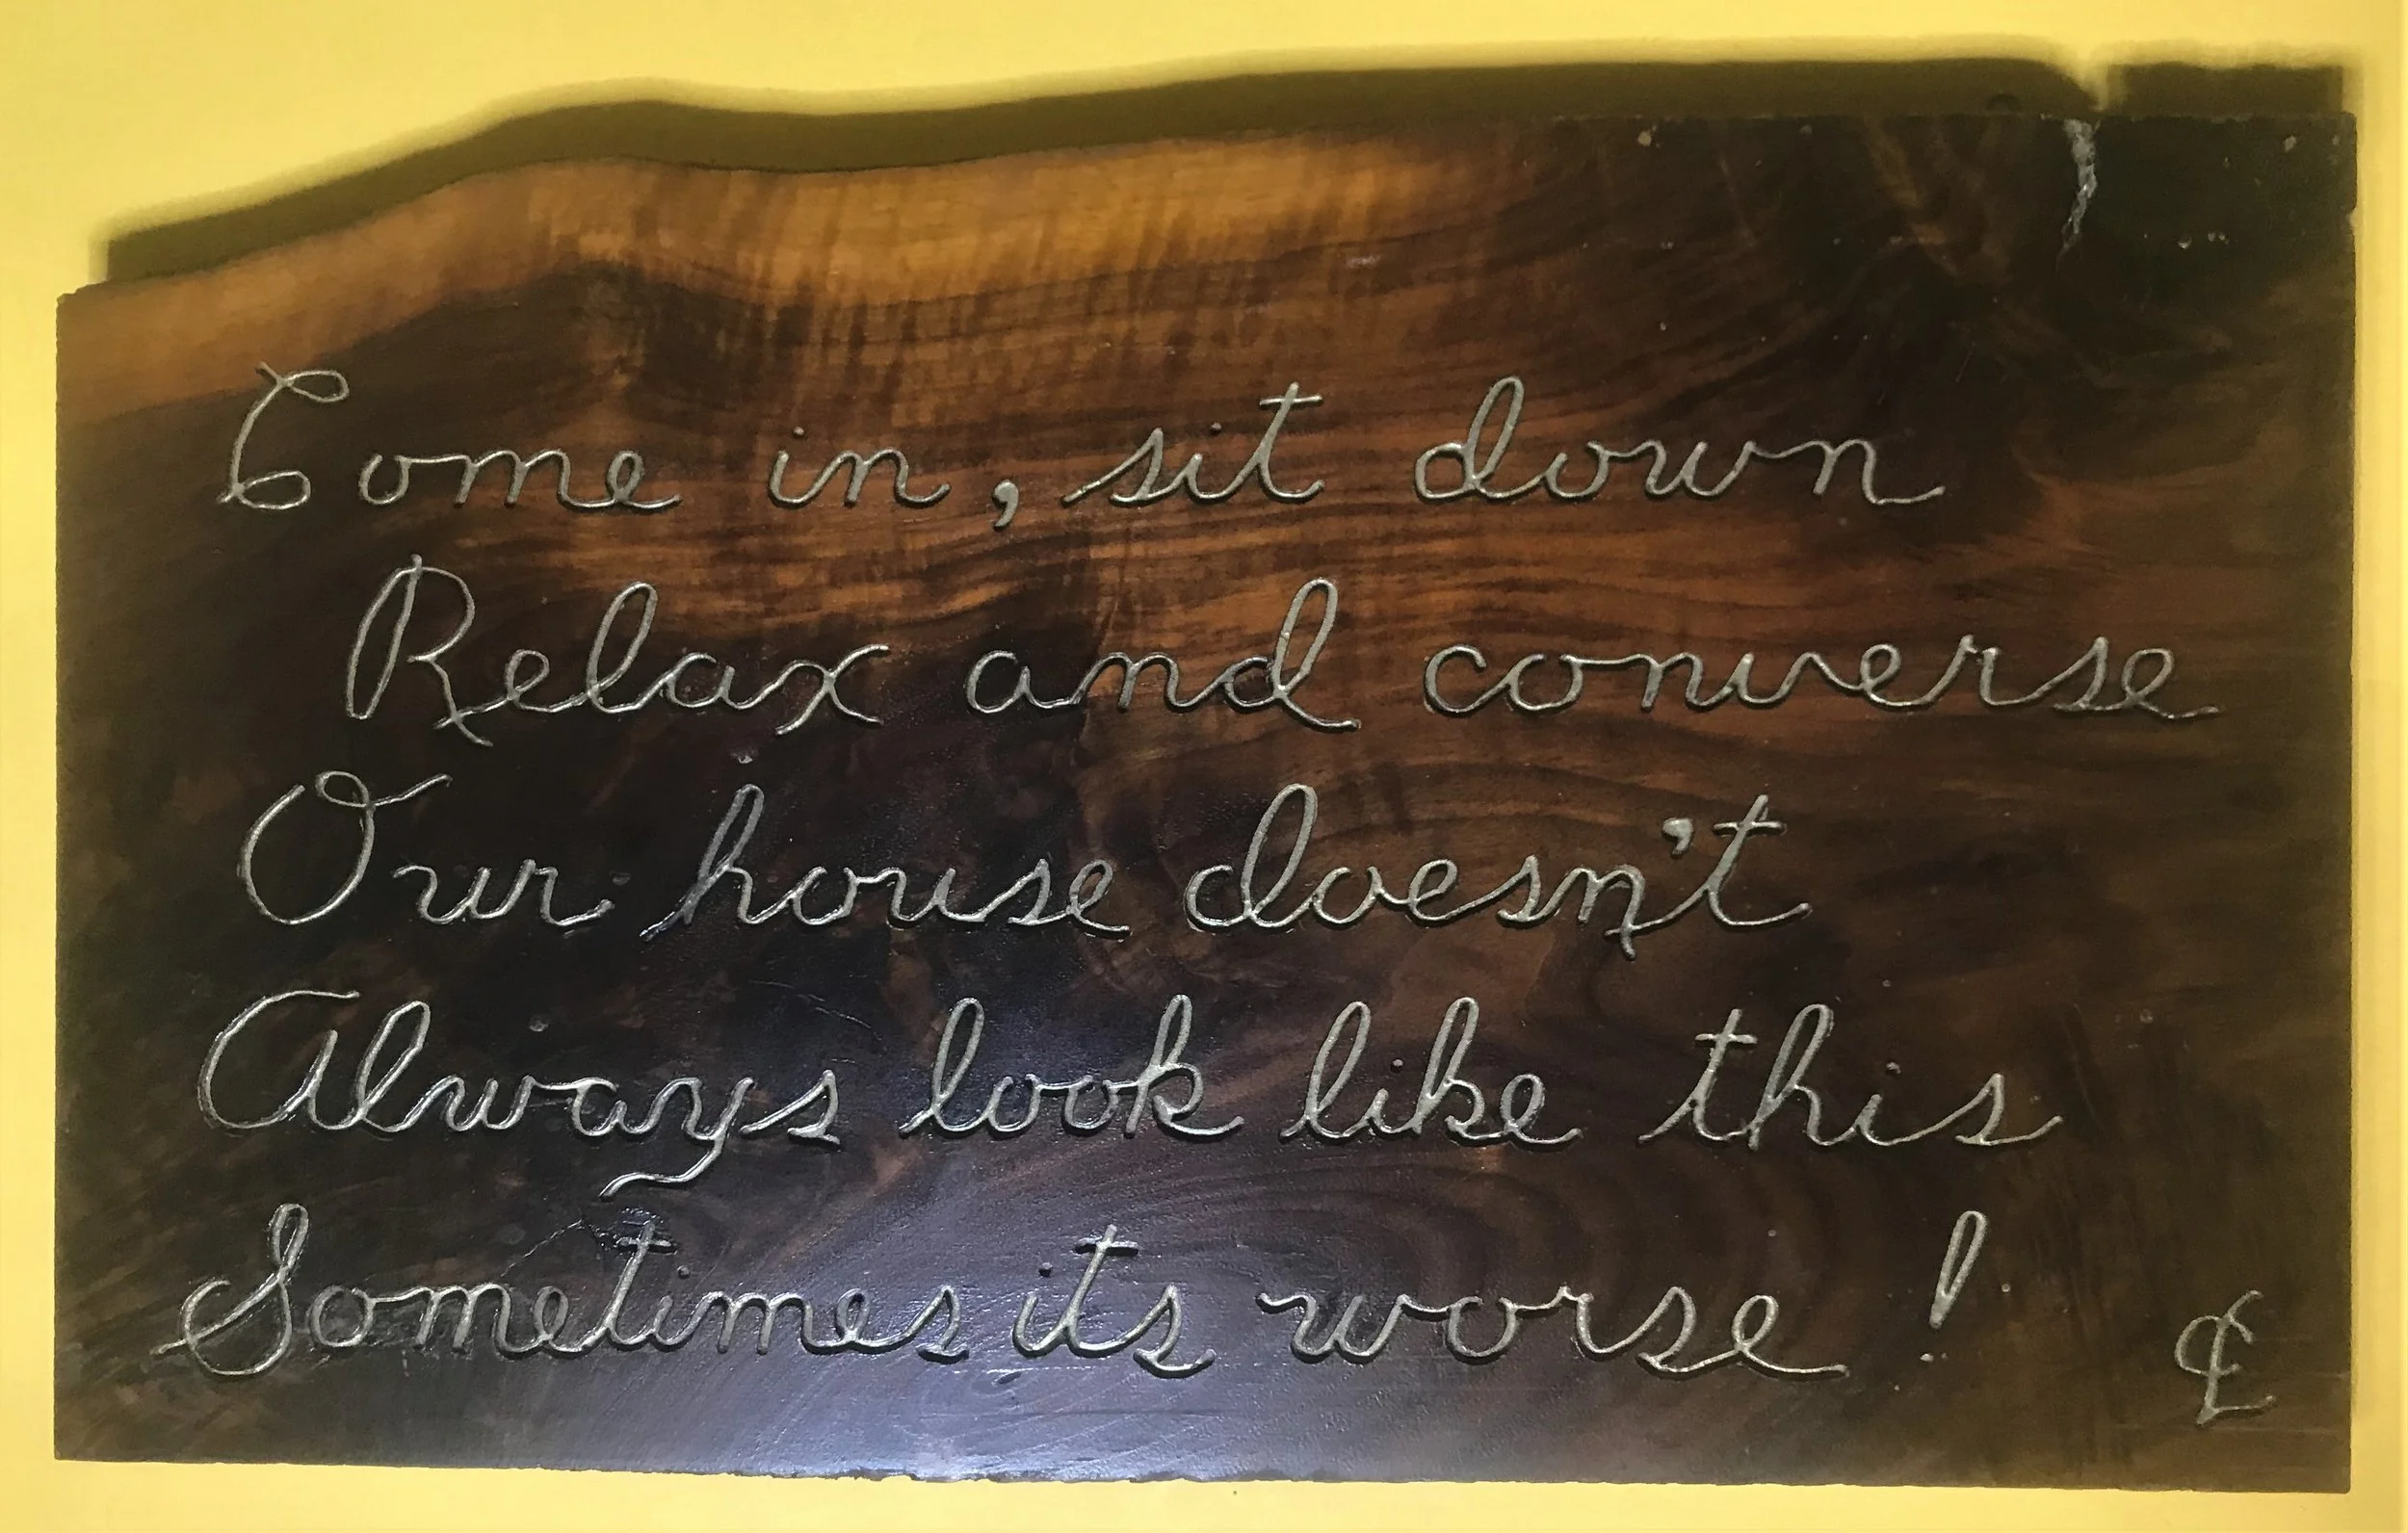 Come in, sit down
Relax and converse
Our house doesn't
Always look like this
Sometimes its worse!